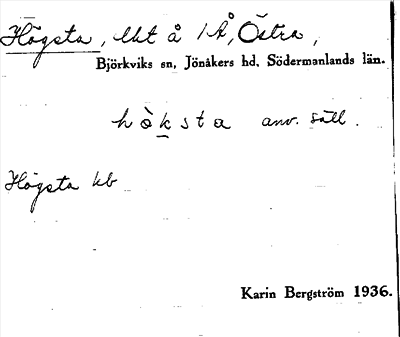 Högsta, lht å /Å, Östra,
Björkviks sn, Jönåkers hd, Södermanlands län.
hòksta anv. säll.
Högsta kb
Karin Bergström 1936.